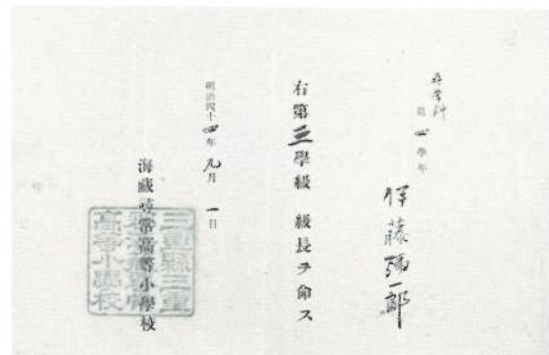 尋常科
第四學年
伊藤彌一郎
右第三學級 級長ヲ命ス
明治四十四年九月一日
海藏尋常高等小學校
三重縣三重
郡海藏尋常
高等小學校